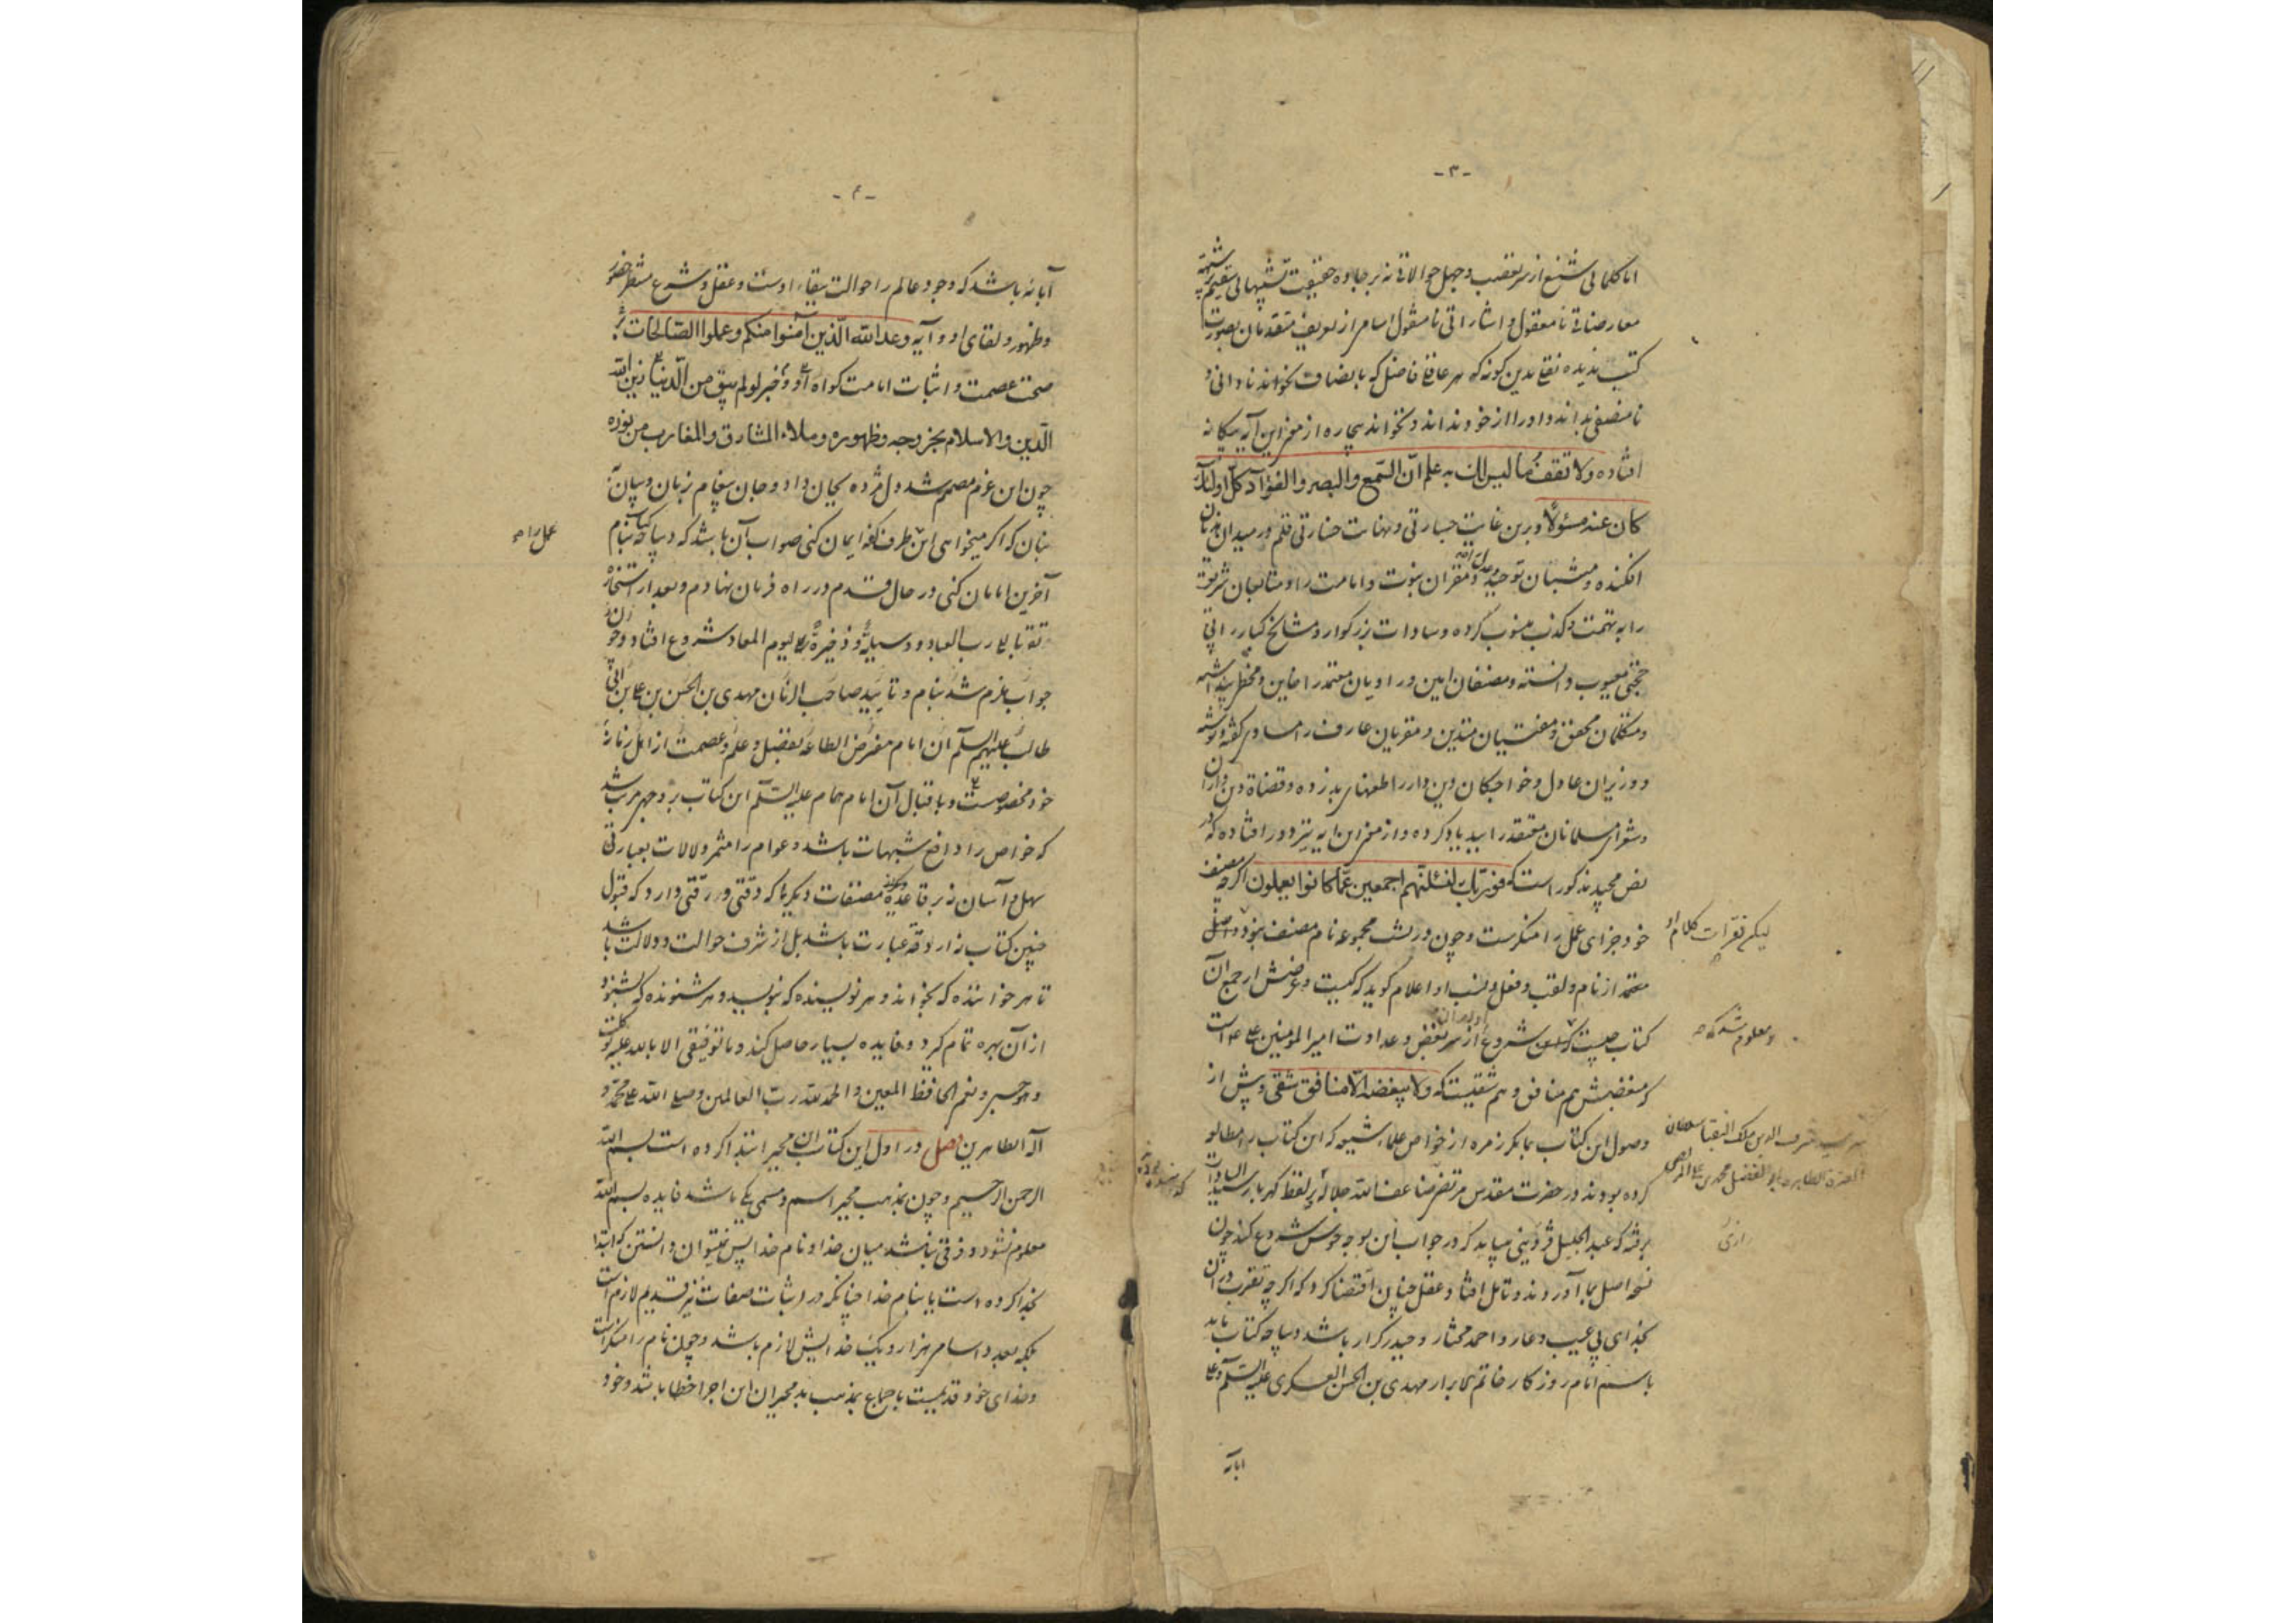 -۳-
اما کلماتی شنیع از سر تعصب و جهل حوالاتی نه بر جاده حقیقت تشبیهاتی سقیم بر شبهه
معارضاتی نامعقول و اشاراتی نامقبول اسامی از تعریف متقدمان بصورت
کتب ندیده نقلی بدین گونه که هر عاقلی فاضل که بانصاف بخواند نادانی و
نامنصفی بداند و او را از خود نداند و نخواند بیچاره از مغز این آیه بیگانه
افتاده ولا تقف ما لیس لک به علم انّ السّمع والبصر والفؤاد کل اولئک
کان عنه مسئولاً و برین غایت جسارتی و نهایت خسارتی قلم در میدان هذیان
افکنده و مثبتان توحید و عدل الله و مقران نبوت و امامت را و متابعان شریعت
را به تهمت و کذب منسوب کرده و سادات بزرگوار و مشایخ کبار را بی
حجتی معیوب دانسته و مصنفان امین و راویان معتمد را خاین و مخطی پنداشته
و متکلمان محقق و مفتیان متدین و مقریان عارف را مساوی گفته و نوشته
و وزیران عادل و خواجکان دین دار را طعنهای بد زده و قضاة دین دار را
و شعرای مسلمانان معتقد را ببد یاد کرده و از مغز این آیه نیز دور افتاده که در
نص مجید مذکور است که فوربّک لنسئلنّهم اجمعین عمّا کانوا یعملون اگرچه مصنف
خود جزای عمل را منکرست و چون در نسب مجموعه نام مصنف نبود و اصل
لیکن فقرات کلام او
معتمد از نام و لقب و فعل و نسب او اعلام گوید که کیست و غرضش از جمع آن
کتاب چیست که این شروع از سر بغض و عداوت امیر المؤمنین علی است
و معلوم شد که
که مبغضش هم منافق و هم شقیست که ولا یبغضه الّا منافق شقی و پیش از
وصول این کتاب بما مگر زمره از خواص علماء شیعه که این کتاب را مطالعه
شرف الدین ملک النقبا سلطان
کرده بودند در حضرت مقدس مرتضی رضا عند الله جلاله بر لفظ گهربار سید السادات
العترة الطاهره ابو الفضل محمد بن علی المرتضی
برفته که عبد الجلیل قزوینی میباید که در جواب این بوجه خوش شروع کند چون
رازی
نسخه اصل بما آوردند و تامل افتاد عقل چنان اقتضا کرد که اگر چه تقرب در آن
بخدای بی عیب و عار و احمد مختار و حیدر کرار باشد دیباچه کتاب باید
باسم امام روزکار خاتم الابرار مهدی بن الحسن العسکری علیه السّلم و علی
آبائه
-۴-
آبائه باشد که وجود عالم را حوالت ببقاء اوست و عقل و شرع منتظر حضور
و ظهور و لقای او و آیه وعد الله الّذین آمنوا منکم وعملوا الصّالحات بر
صحت عصمت و اثبات امامت گواه او و خبر لو لم یبق من الدّنیا زین الله
الدّین والاسلام بخروجه وظهوره وملاء المشارق والمغارب من نوره
چون این عزم مصمم شد دل مژده بجان داد و جان پیغام بزبان و بیان به
بنان که اگر میخواهی این طرف که ایمان کنی صواب آن باشد که دیباچه کتاب بنام
عمل راه
آخرین امامان کنی در حال قدم در راه فرمان نهادم و بعد از استخاره
تقربا الی رب العباد و وسیلةً و ذخیرةً لیوم المعاد شروع افتاد و چون
جواب ملزم شد بنام و تایید صاحب الزمان مهدی بن الحسن بن علی بن ابی
طالب علیهم السلم آن امام مفترض الطاعه بفضل و علم و عصمت از اهل زمانه
خود مخصوصست و باقبال آن امام همام علیه السّلم این کتاب بر وجهی مرتب شد
که خواص را دافع شبهات باشد و عوام را مثمر دلالات بعبارتی
سهل و آسان نه بر قاعده مصنفات دیگر ما که دقتی و رقتی دارد که قبول
چنین کتاب نه از دقة عبارت باشد بل از شرف حوالت و دلالت باشد
تا هر خواننده که بخواند و هر نویسنده که بنویسد و هر شنونده که بشنود
از آن بهره تمام گیرد و فایده بسیار حاصل کند وما توفیقی الا بالله علیه توکلت
وهو حسبی ونعم الحافظ المعین والحمد لله رب العالمین وصلی الله علی محمد و
آله الطاهرین فصل در اول این کتاب آن مجبر ابتدا کرده است بسم الله
الرحمن الرحیم و چون بمذهب مجبر اسم و مسمی یکی باشد فایده بسم الله
معلوم نشود و فرقی نباشد میان خدا و نام خدا پس نتوان دانستن که ابتدا
بخدا کرده است یا بنام خدا چنانکه در اثبات صفات نیز قدیم لازم است
بلکه بعدد اسامی هزار و یک خدایش لازم باشد و چون نام را منکر است
و خدای خود قدیمیست باجماع بمذهب بد مجبران این اجرا خطا باشد و خود